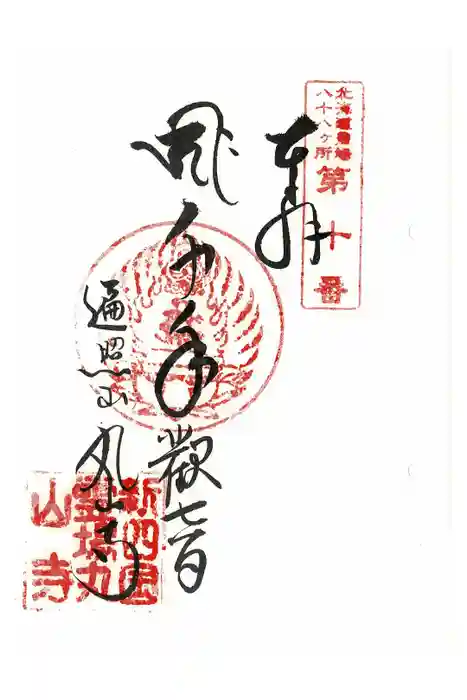 北海道霊場
八十八ヶ所
第十番
奉拝
千手觀音
遍照山 丸山寺
新四国
霊場丸
山寺